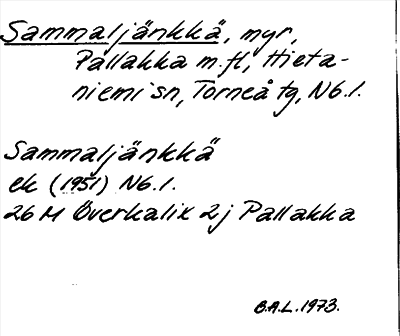 Sammaljänkkä, myr,
Pallakka m.fl, Hieta-
niemi sn, Torneå tg, Nb.l.
Sammaljänkkä
ek (1951) Nb.l.
26 M Överkalix 2j Pallakka
B.A.L. 1973.